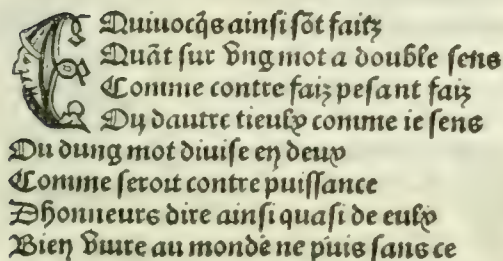 EQuiuocq̃s ainsi sõt faitz
Quãt sur vng mot a double sens
Comme contre faiz pesant faiz
Ou dautre tieulx comme ie sens
Ou dung mot diuise en deux
Comme seroit contre puissance
Dhonneurs dire ainsi quasi de eulx
Bien viure au monde ne puis sans ce